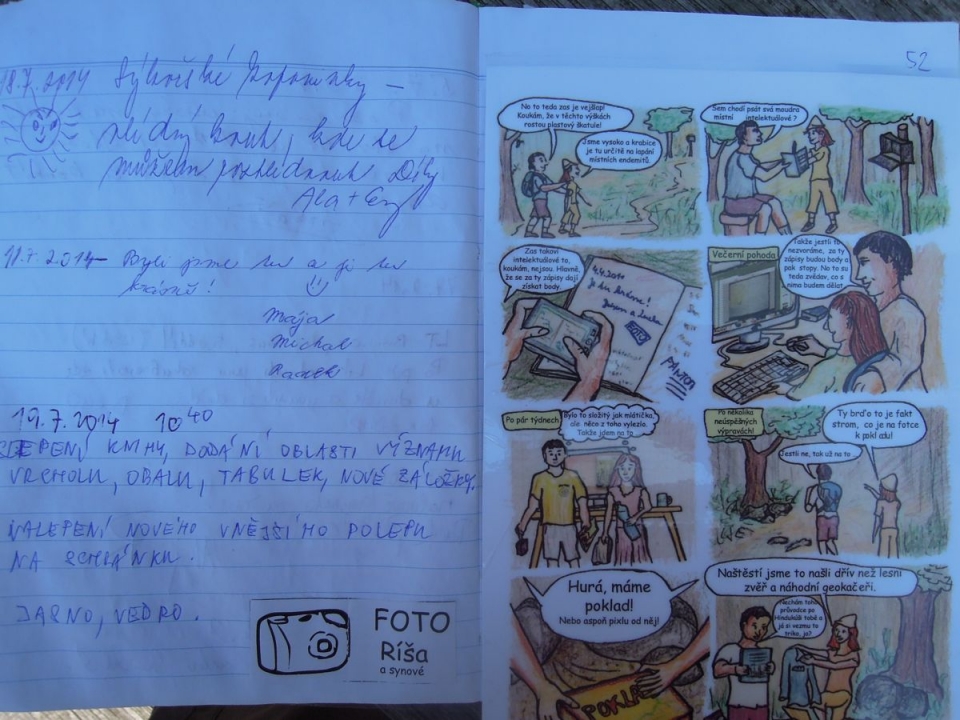 18.7.2014 Sýkořské Kopaninky –
klidný kout, kde se
můžem poohlédnout Díky
18.7.2014 – Byli jsme tu a je tu
krásně!
Mája
Michal
Radek
19.7.2014 10⁴⁰
SLEPENÍ KNIHY, DODÁNÍ OBLASTI VÝZNAMU
VRCHOLU, OBALU, TABULEK, NOVÉ ZÁLOŽKY.
NALEPENÍ NOVÉHO VNĚJŠÍHO POLEPU
NA SCHRÁNKU.
JASNO, VEDRO.
FOTO
Ríša
a synové
52
No to teda zas je vejšlap!
Koukám, že v těchto výškách
rostou plastový škatule!
Jsme vysoko a krabice
je tu určitě na lapání
místních endemitů.
Sem chodí psát svá moudra
místní intelektuálové?
Zas takoví
intelektuálové to,
koukám, nejsou. Hlavně,
že se za ty zápisy dají
získat body.
4.4.2011
Je tu krásně!
Večerní pohoda
Takže jestli to
nezvoráme, za ty
zápisy budou body a
pak stopy. No to su
teda zvědav, co s
nima budem dělat.
Po pár týdnech
Bylo to složitý jak mlátička,
ale něco z toho vylezlo.
Takže jdem na to.
Po několika
neúspěšných
výpravách!
Jestli ne, tak už na to...
Ty brďo to je fakt
strom, co je na fotce
k pokladu!
Hurá, máme
poklad!
Nebo aspoň pixlu od něj!
POKLAD
Naštěstí jsme to našli dřív než lesní
zvěř a náhodní geokačeři.
Nechám toho
průvodce po
Hindúkúši tobě a
já si vezmu to
triko, jo?